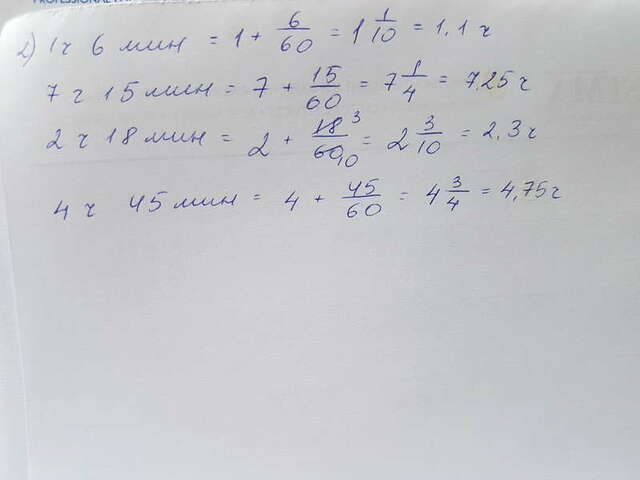 PROFESSIONAL
2) 1ч 6 мин = 1 + 6/60 = 1 1/10 = 1.1 ч
7 ч 15 мин = 7 + 15/60 = 7 1/4 = 7,25 ч
2 ч 18 мин = 2 + 18 3/60 10 = 2 3/10 = 2,3 ч
4 ч 45 мин = 4 + 45/60 = 4 3/4 = 4,75 ч